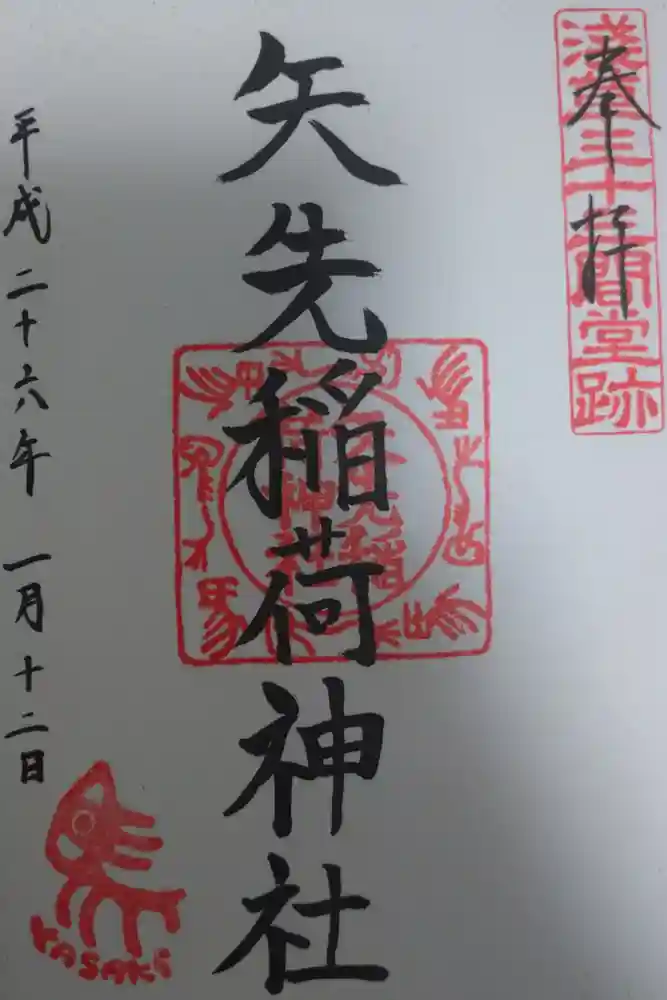 奉拝
淺草三十三間堂跡
矢先稲荷神社
平成二十六年 一月十二日
YASAKI